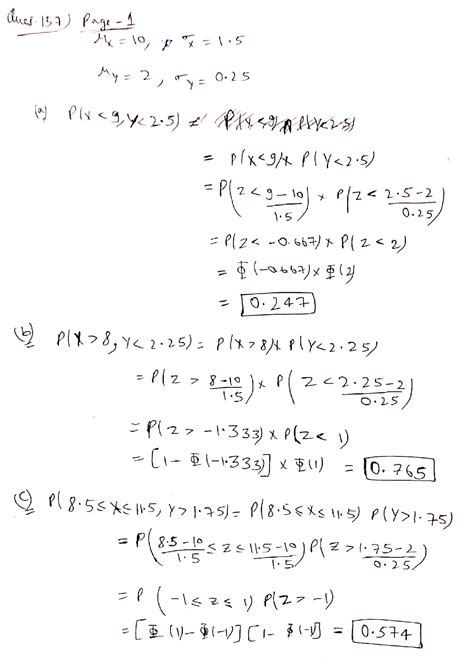 Ques. 157) Page-1
μx = 10, σx = 1.5
μy = 2, σy = 0.25
(a) P(X < 9, Y < 2.5)
= P(X<9) x P(Y < 2.5)
= P(Z < 9-10/1.5) x P(Z < 2.5-2/0.25)
= P(Z < -0.667) x P(Z < 2)
= Φ(-0.667) x Φ(2)
= 0.247
(b) P(X > 8, Y < 2.25) = P(X > 8) x P(Y < 2.25)
= P(Z > 8-10/1.5) x P(Z < 2.25-2/0.25)
= P(Z > -1.333) x P(Z < 1)
= [1 - Φ(-1.333)] x Φ(1) = 0.765
(c) P(8.5 ≤ X ≤ 11.5, Y > 1.75) = P(8.5 ≤ X ≤ 11.5) P(Y > 1.75)
= P(8.5-10/1.5 ≤ Z ≤ 11.5-10/1.5) P(Z > 1.75-2/0.25)
= P (-1 ≤ Z ≤ 1) P(Z > -1)
= [Φ(1) - Φ(-1)] [1 - Φ(-1)] = 0.574